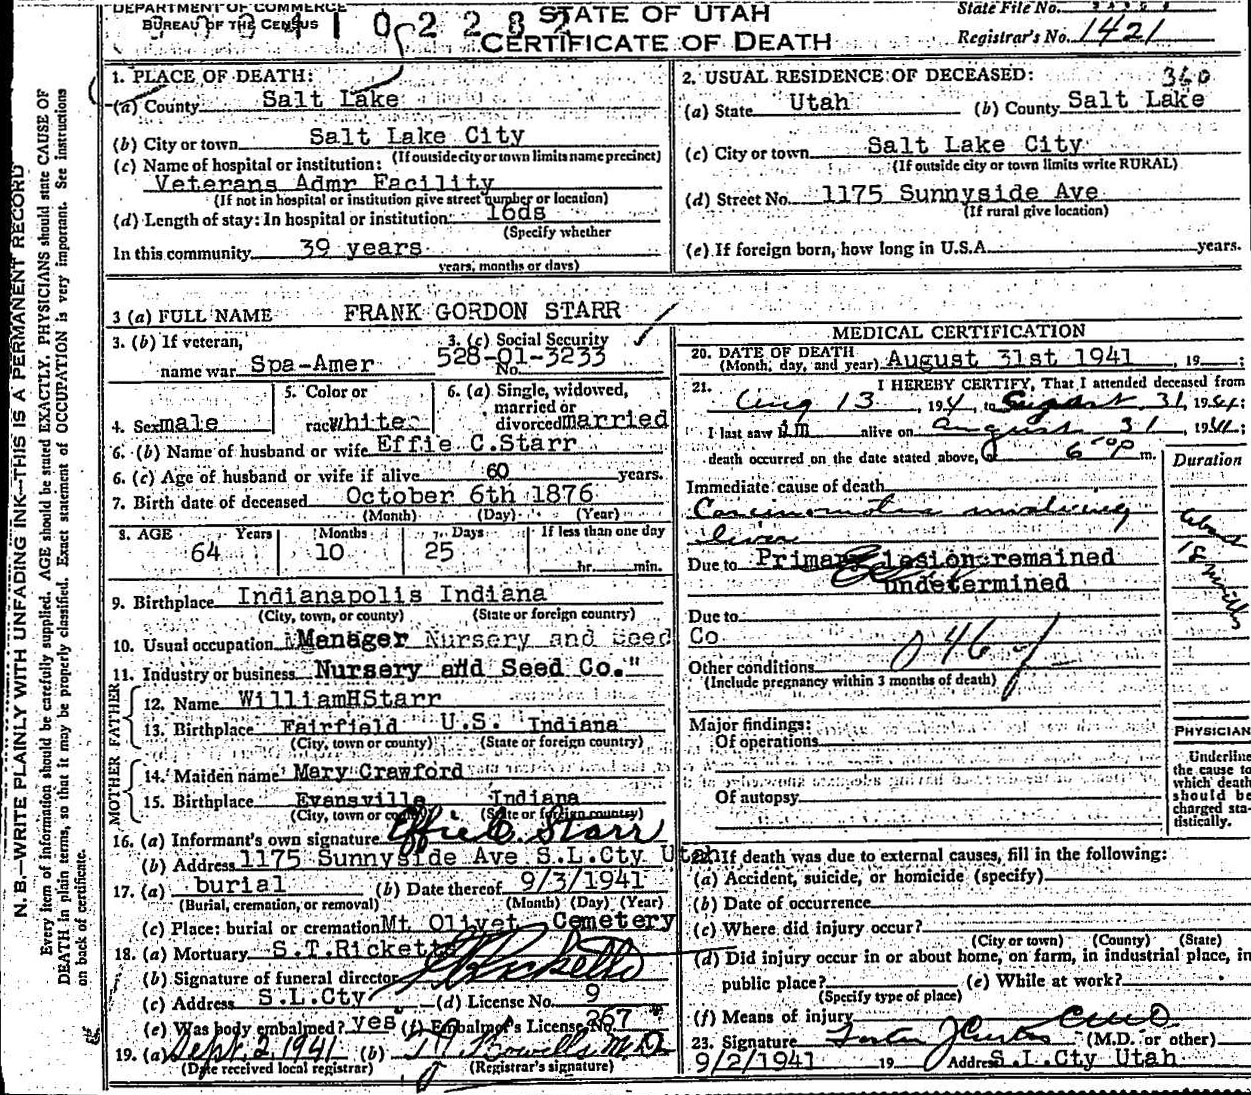 DEPARTMENT OF COMMERCE
BUREAU OF THE CENSUS
STATE OF UTAH
CERTIFICATE OF DEATH
State File No.
Registrar's No. 1421
N. B.—WRITE PLAINLY WITH UNFADING INK—THIS IS A PERMANENT RECORD
Every item of information should be carefully supplied. AGE should be stated EXACTLY. PHYSICIANS should state CAUSE OF
DEATH in plain terms, so that it may be properly classified. Exact statement of OCCUPATION is very important. See instructions
on back of certificate.
1. PLACE OF DEATH:
(a) County Salt Lake
(b) City or town Salt Lake City
(If outside city or town limits name precinct)
(c) Name of hospital or institution:
Veterans Admr Facility
(If not in hospital or institution give street number or location)
(d) Length of stay: In hospital or institution 16ds
(Specify whether
In this community 39 years
years, months or days)
2. USUAL RESIDENCE OF DECEASED: 360
(a) State Utah (b) County Salt Lake
(c) City or town Salt Lake City
(If outside city or town limits write RURAL)
(d) Street No. 1175 Sunnyside Ave
(If rural give location)
(e) If foreign born, how long in U.S.A. years.
3 (a) FULL NAME FRANK GORDON STARR
3. (b) If veteran, name war Spa-Amer
3. (c) Social Security No. 528-01-3233
4. Sex male
5. Color or race white
6. (a) Single, widowed, married or divorced married
6. (b) Name of husband or wife Effie C.Starr
6. (c) Age of husband or wife if alive 60 years.
7. Birth date of deceased October 6th 1876
(Month) (Day) (Year)
8. AGE Years Months Days If less than one day
64 10 25 hr. min.
9. Birthplace Indianapolis Indiana
(City, town, or county) (State or foreign country)
10. Usual occupation Manager Nursery and Seed
11. Industry or business Nursery and Seed Co."
FATHER
12. Name WilliamHStarr
13. Birthplace Fairfield U.S. Indiana
(City, town or county) (State or foreign country)
MOTHER
14. Maiden name Mary Crawford
15. Birthplace Evansville Indiana
(City, town or county) (State or foreign country)
16. (a) Informant's own signature Effie C. Starr
(b) Address 1175 Sunnyside Ave S.L.Cty Utah
17. (a) burial (b) Date thereof 9/3/1941
(Burial, cremation, or removal) (Month) (Day) (Year)
(c) Place: burial or cremation Mt Olivet Cemetery
18. (a) Mortuary S.T.Ricketts
(b) Signature of funeral director
(c) Address S.L.Cty (d) License No. 9
(e) Was body embalmed? yes (f) Embalmer's License No. 267
19. (a) Sept. 2, 1941 (b)
(Date received local registrar) (Registrar's signature)
MEDICAL CERTIFICATION
20. DATE OF DEATH
(Month, day, and year) August 31st 1941, 19
21. I HEREBY CERTIFY, That I attended deceased from
Aug 13, 1941, to August 31, 1941;
I last saw him alive on August 31, 1941;
death occurred on the date stated above, 6 00 P m.
Duration
Immediate cause of death
Carcinomatus involving
liver
About 18 months
Due to Primary lesion remained
undetermined
Due to
Co
046
Other conditions
(Include pregnancy within 3 months of death)
Major findings:
Of operations
Of autopsy
PHYSICIAN
Underline
the cause to
which death
should be
charged sta-
tistically.
22. If death was due to external causes, fill in the following:
(a) Accident, suicide, or homicide (specify)
(b) Date of occurrence
(c) Where did injury occur?
(City or town) (County) (State)
(d) Did injury occur in or about home, on farm, in industrial place, in
public place? (e) While at work?
(Specify type of place)
(f) Means of injury
23. Signature (M.D. or other)
9/2/1941 19 Address S.L.Cty Utah